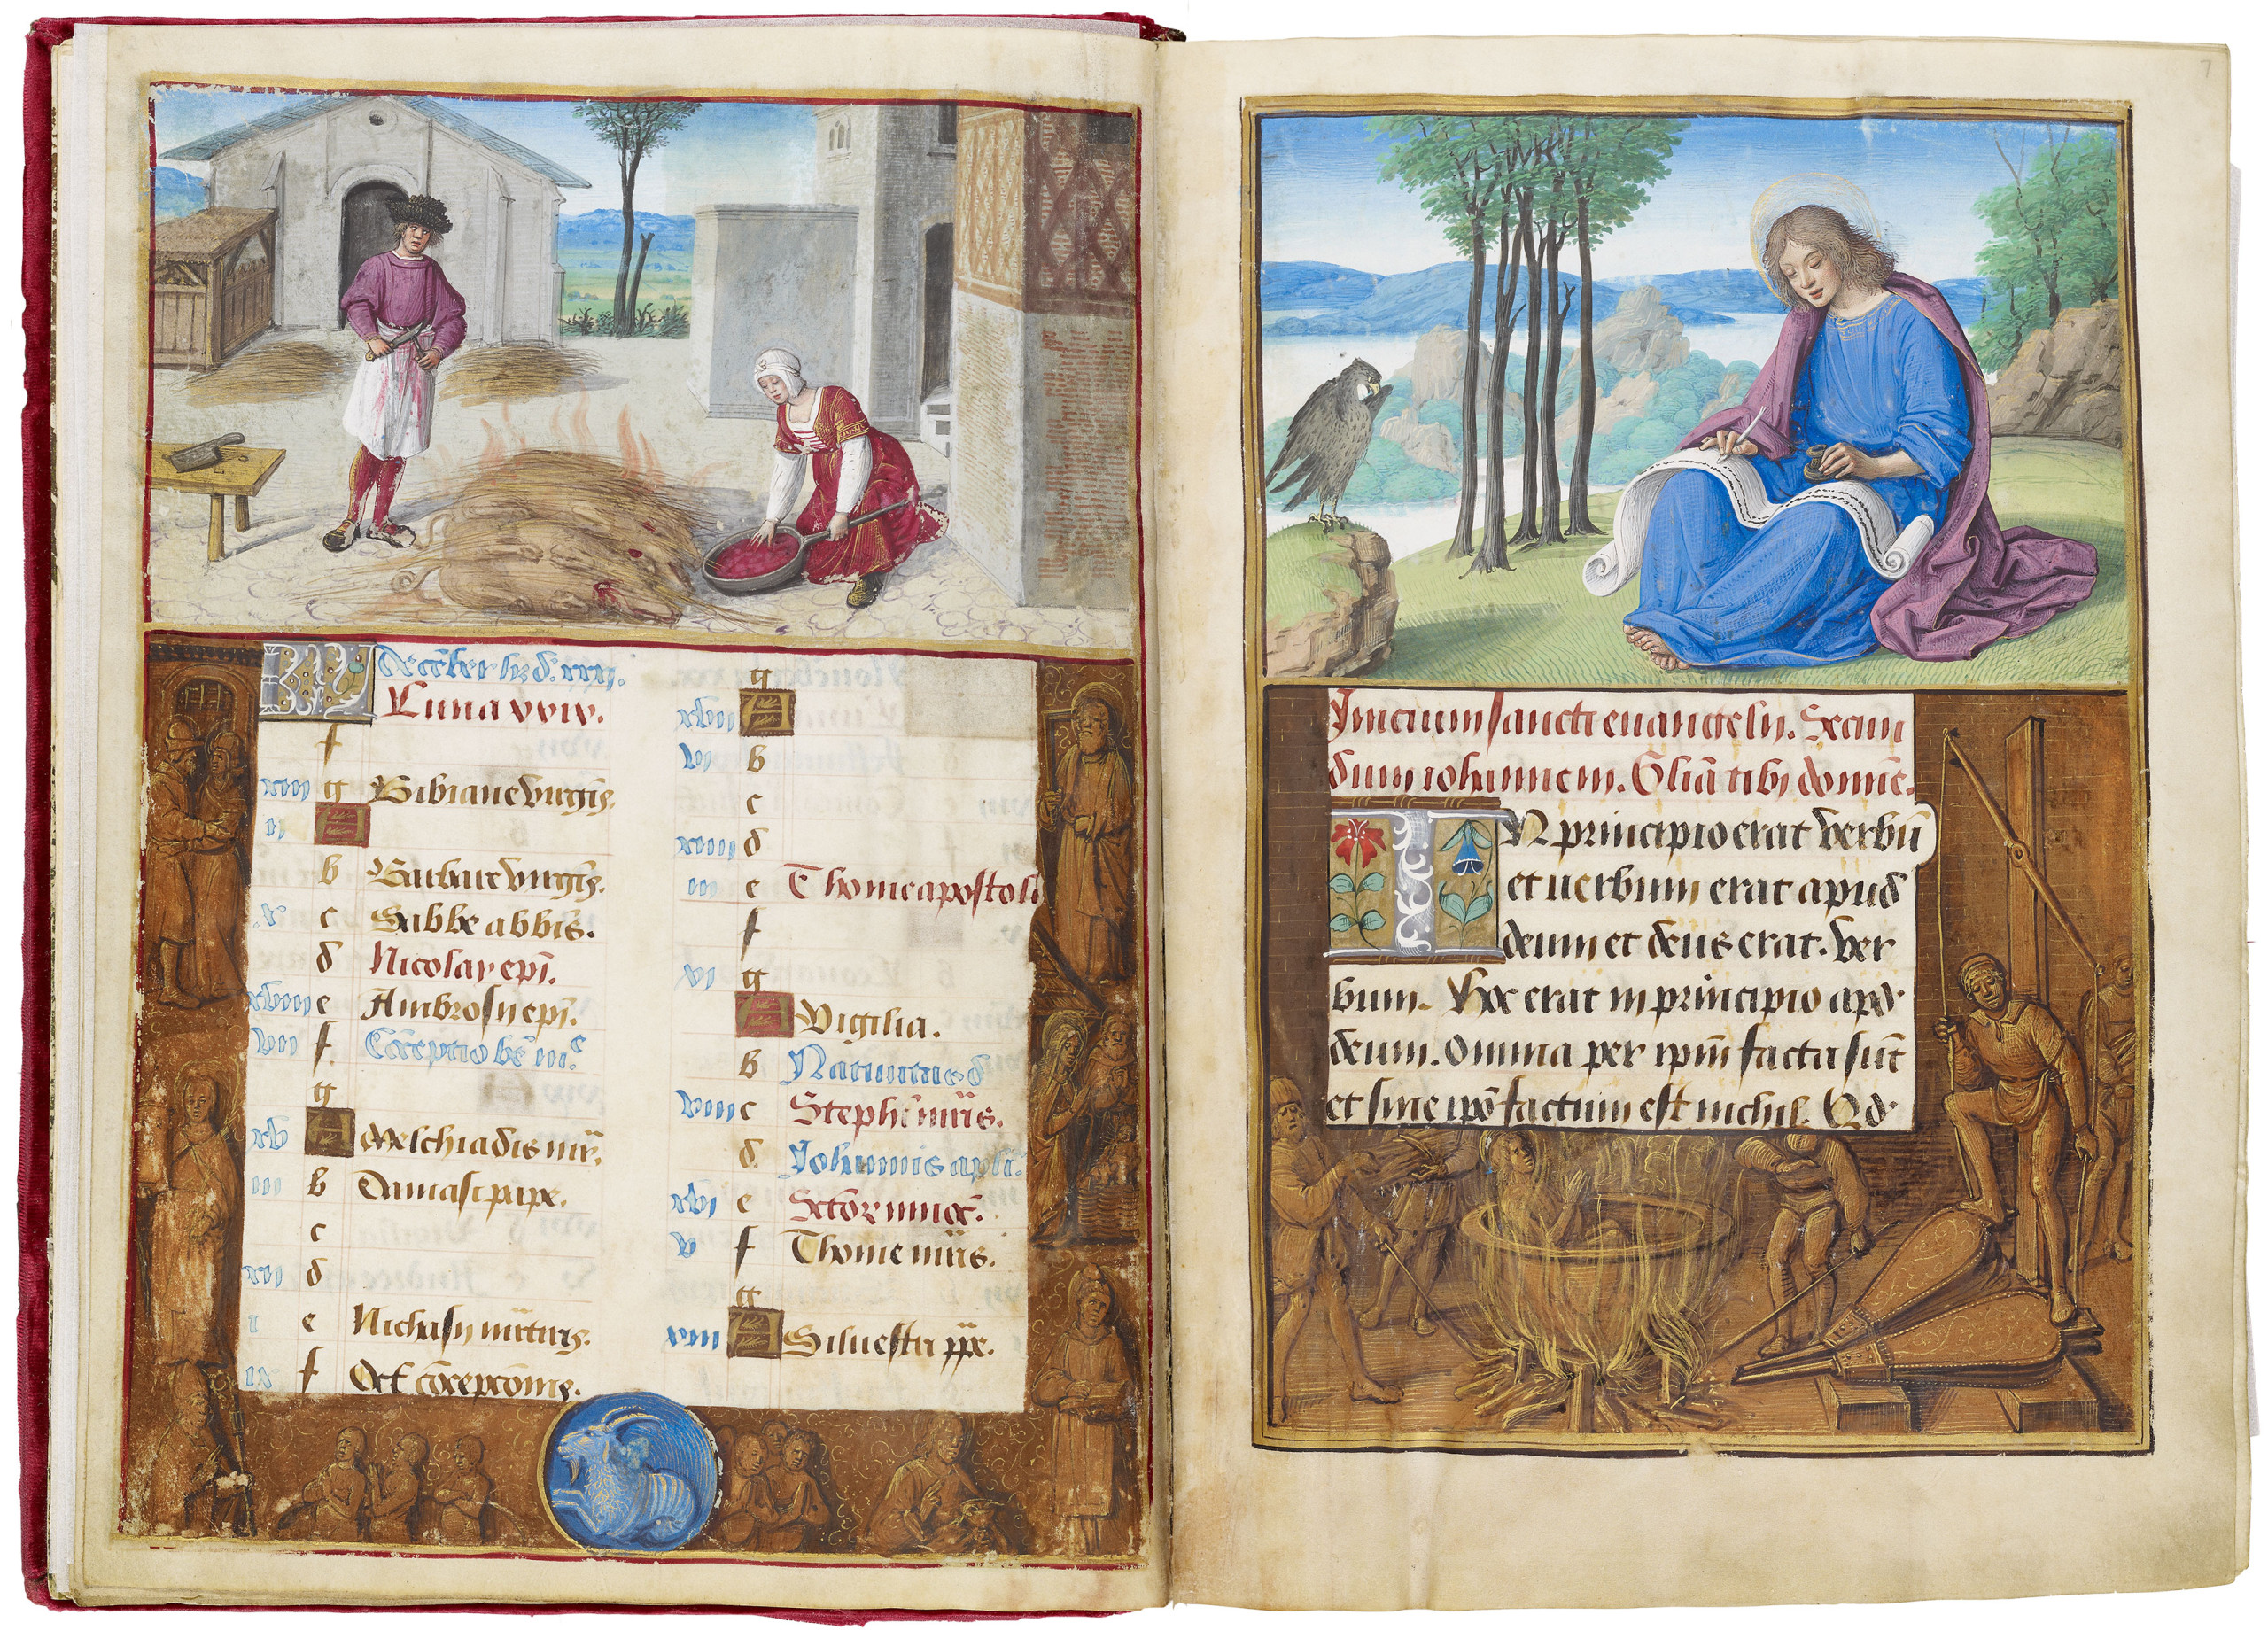 KL december h3 d. xxxj.
Luna xxix.
f
xiii g Bibiane virgis.
ii A
b Barbare virgis.
x c Sabbe abbis.
d Nicolay epi.
xviii e Ambrosii epi.
vii f Cōceptio be m.e
g
xv A Melchiadis mr.
iiii b Damasi pape.
c
xii d
i e Nichasii martiris.
ix f Oct cōceptōnis.
g
xvii A
vi b
c
xiiii d
iii e Thome apostoli
f
xi g
A Vigilia.
b Natiuitas d
viii c Stephi mris.
d Johannis apli.
xvi e Sctōr innoc.
v f Thome mris.
g
xiii A Siluestri ppe.
7
Inicium sancti euangelii. Secun
dum iohannem. Glia tibi domine.
IN principio erat verbū
et uerbum erat apud
deum et deus erat. ver
bum. Hoc erat in principio apd.
deum. Omnia per ipm facta sūt
et sine ipō factum est nichil. Qd.